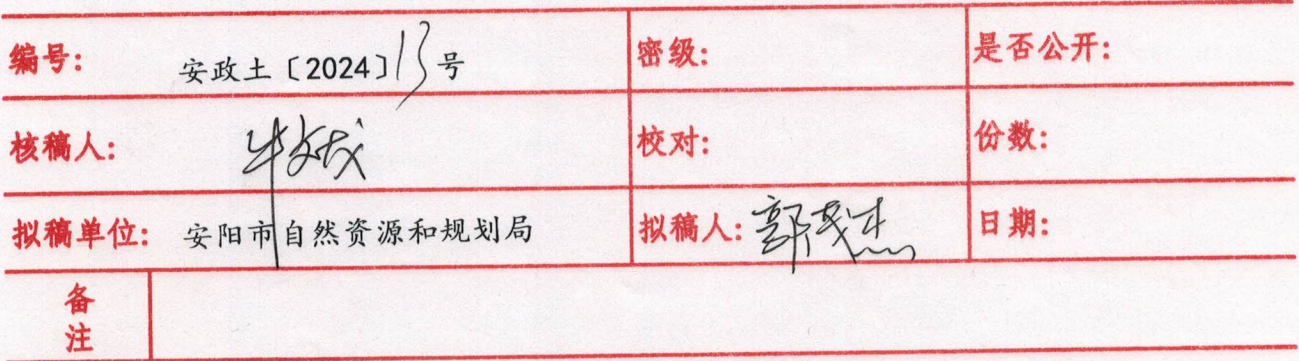 编号: 安政土〔2024〕13号 密级: 是否公开:
核稿人: 校对: 份数:
拟稿单位: 安阳市自然资源和规划局 拟稿人: 日期:
备注